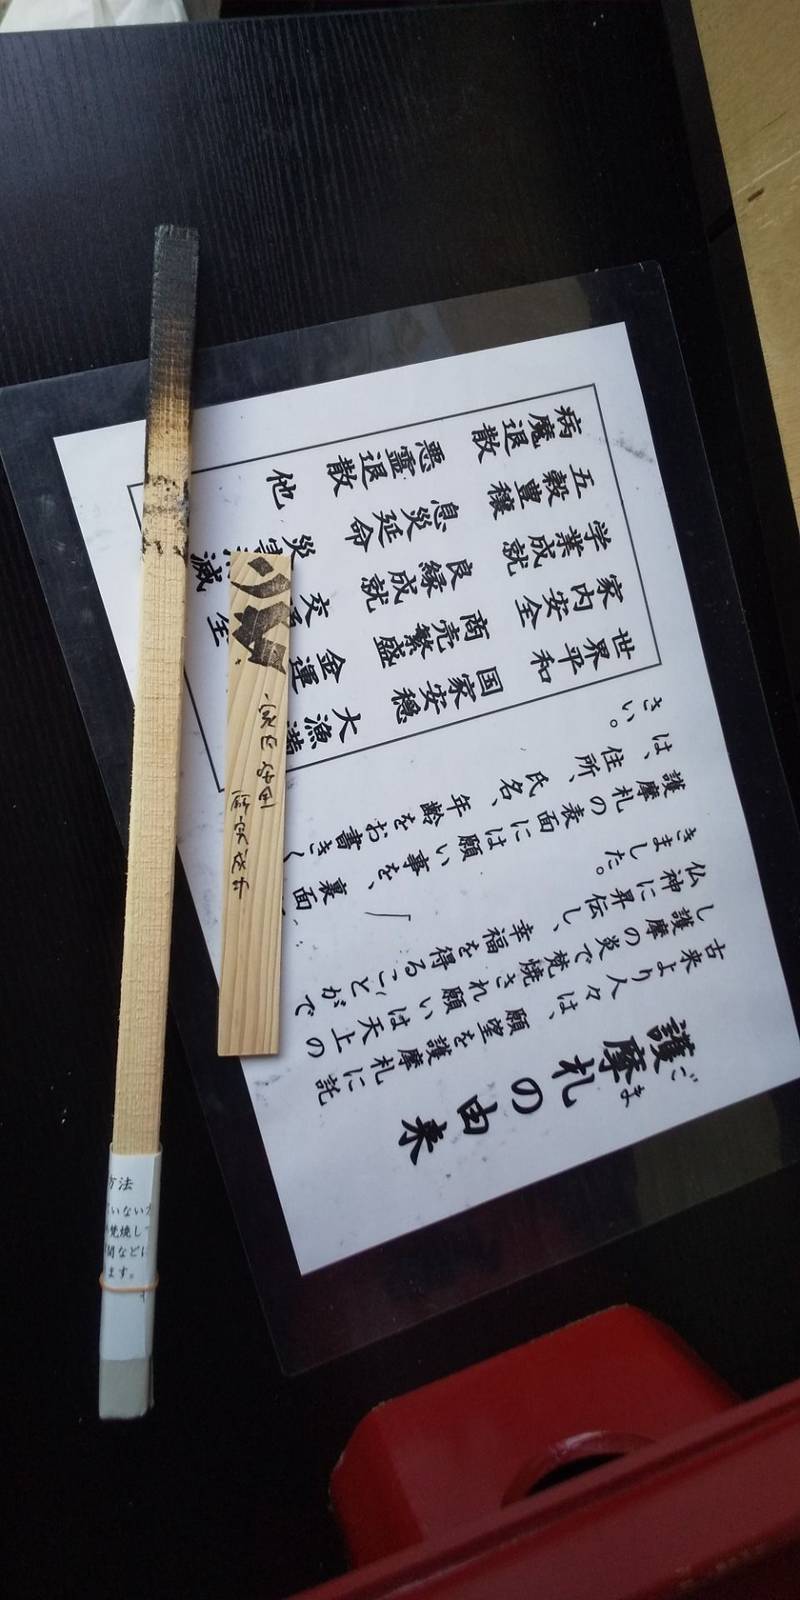 ごま
護摩札の由来
古来より人々は、願望を護摩札に託
し護摩の炎で梵焼され願いは天上の
仏神に昇伝し、幸福を得ることがで
きました。
護摩札の表面には願い事を、裏面
は、住所、氏名、年齢をお書きく
さい。
世界平和 国家安穏 大漁満
家内安全 商売繁盛 金運
学業成就 良縁成就 交 全
五穀豊穣 息災延命 災 滅
病魔退散 悪霊退散 他
方法
いない
梵焼し
間などに
ます。